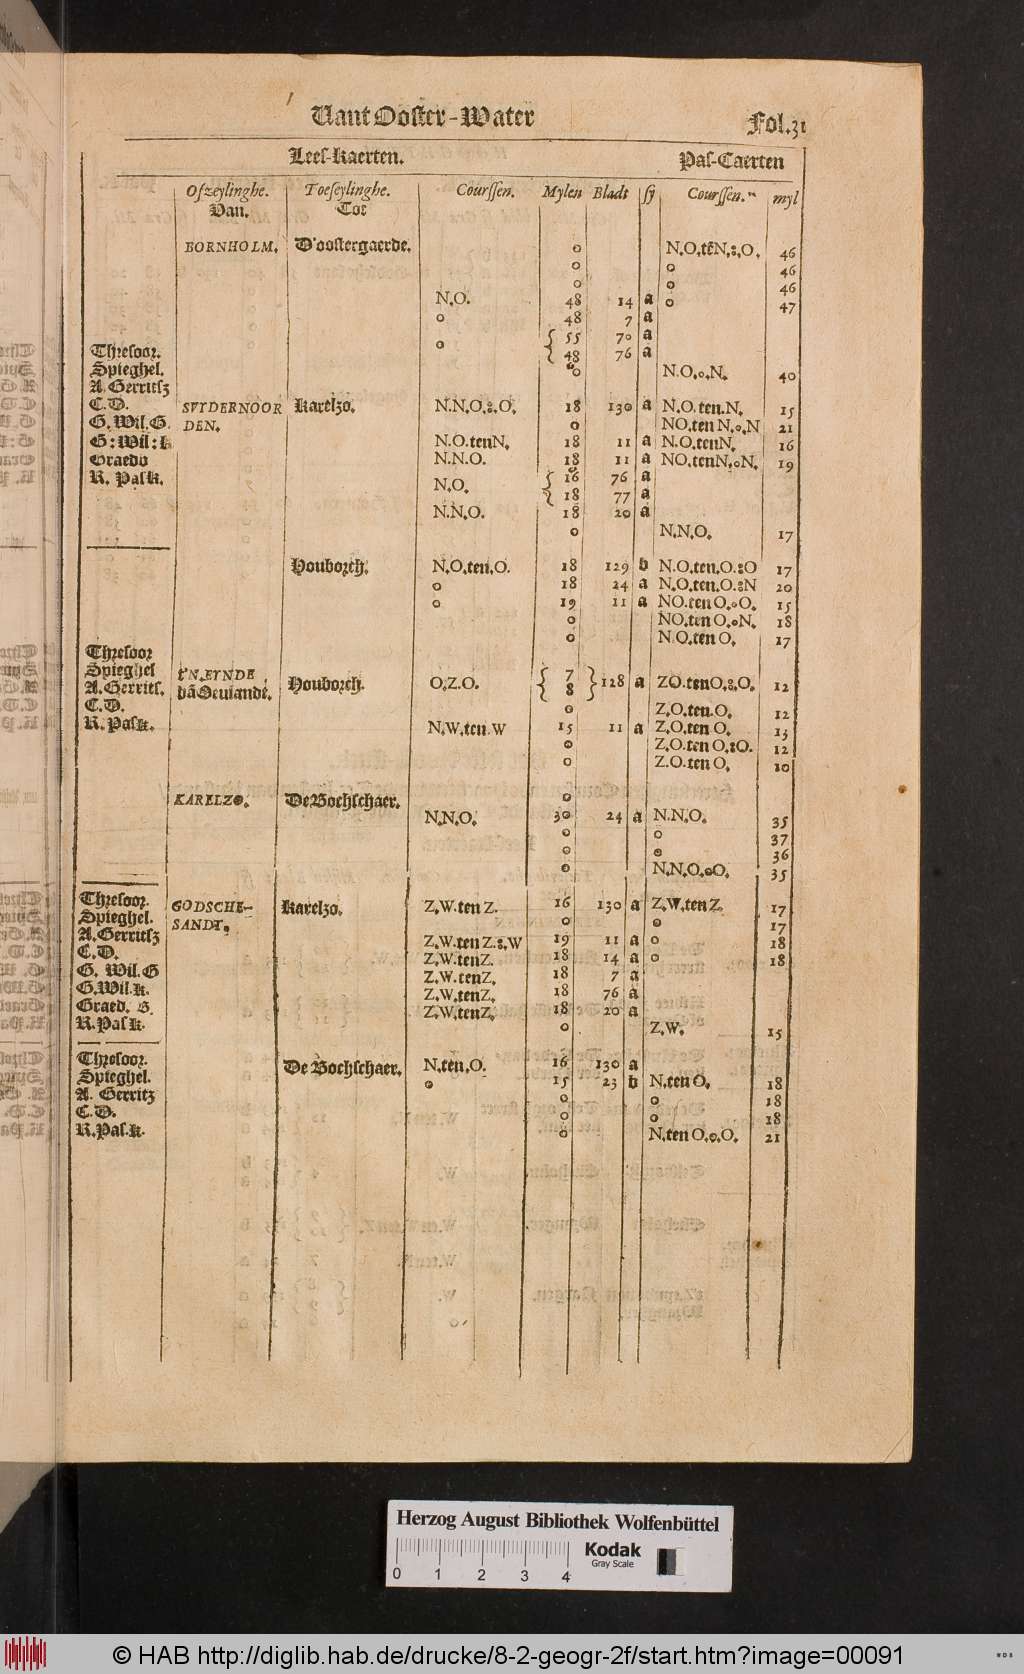 Vant Ooster-Water Fol.31
Lees-kaerten. Pas-Caerten
Ofzeylinghe. Toeseylinghe. Courssen. Mylen Bladt sy Courssen. myl
Van. Tot
BORNHOLM. D'oostergaerde. o N.O.tēN.:.O. 46
o o 46
o o 46
N.O. 48 14 a o 47
o 48 7 a
o { 55 70 a
Thresoor. { 48 76 a
Spieghel. o N.O.o.N. 40
A. Gerritsz
C.D. SVYDERNOOR Karelzo. N.N.O.:.O. 18 130 a N.O.ten.N. 15
G. Wil.G. DEN. o NO.ten N.o.N 21
G:Wil:k N.O.tenN. 18 11 a N.O.tenN. 16
Graedb N.N.O. 18 11 a NO.tenN.oN. 19
R. Pask. N.O. { 16 76 a
{ 18 77 a
N.N.O. 18 20 a
o N.N.O. 17
Houborch. N.O.ten.O. 18 129 b N.O.ten.O.:O 17
o 18 24 a N.O.ten.O.:N 20
o 19 11 a NO.ten O.oO. 15
o NO.ten O.oN. 18
o N.O.ten O. 17
Thresoor
Spieghel t'N.EYNDE { 7 }
A.Gerrits. vā Oeulandt. Houborch. O.Z.O. { 8 } 128 a ZO.tenO.:.O. 12
C.D. o Z.O.ten.O. 12
R.Pask. N.W.ten.W 15 11 a Z.O.ten O. 13
o Z.O.ten O.:O. 12
o Z.O.ten O. 10
KARELZO. De Bochschaer. o
N.N.O. 30 24 a N.N.O. 35
o o 37
o o 36
o N.N.O.oO. 35
Thresoor. GODSCHE- Karelzo. Z.W.ten Z. 16 130 a Z.W.tenZ. 17
Spieghel. SANDT. o o 17
A.Gerritsz Z.W.ten Z.:.W 19 11 a o 18
C.D. Z.W.tenZ. 18 14 a o 18
G. Wil.G Z.W.tenZ. 18 7 a
G.Wil.k. Z.W.tenZ. 18 76 a
Graed. G. Z.W.tenZ. 18 20 a
R.Pask. o Z.W. 15
Thresoor. De Bochschaer. N.ten.O. 16 130 a
Spieghel. o 15 23 b N.ten O. 18
A. Gerritz o o 18
C.D. o o 18
R.Pas.k. o N.ten O.o.O. 21
Herzog August Bibliothek Wolfenbüttel
Kodak
Gray Scale
0 1 2 3 4
© HAB http://diglib.hab.de/drucke/8-2-geogr-2f/start.htm?image=00091